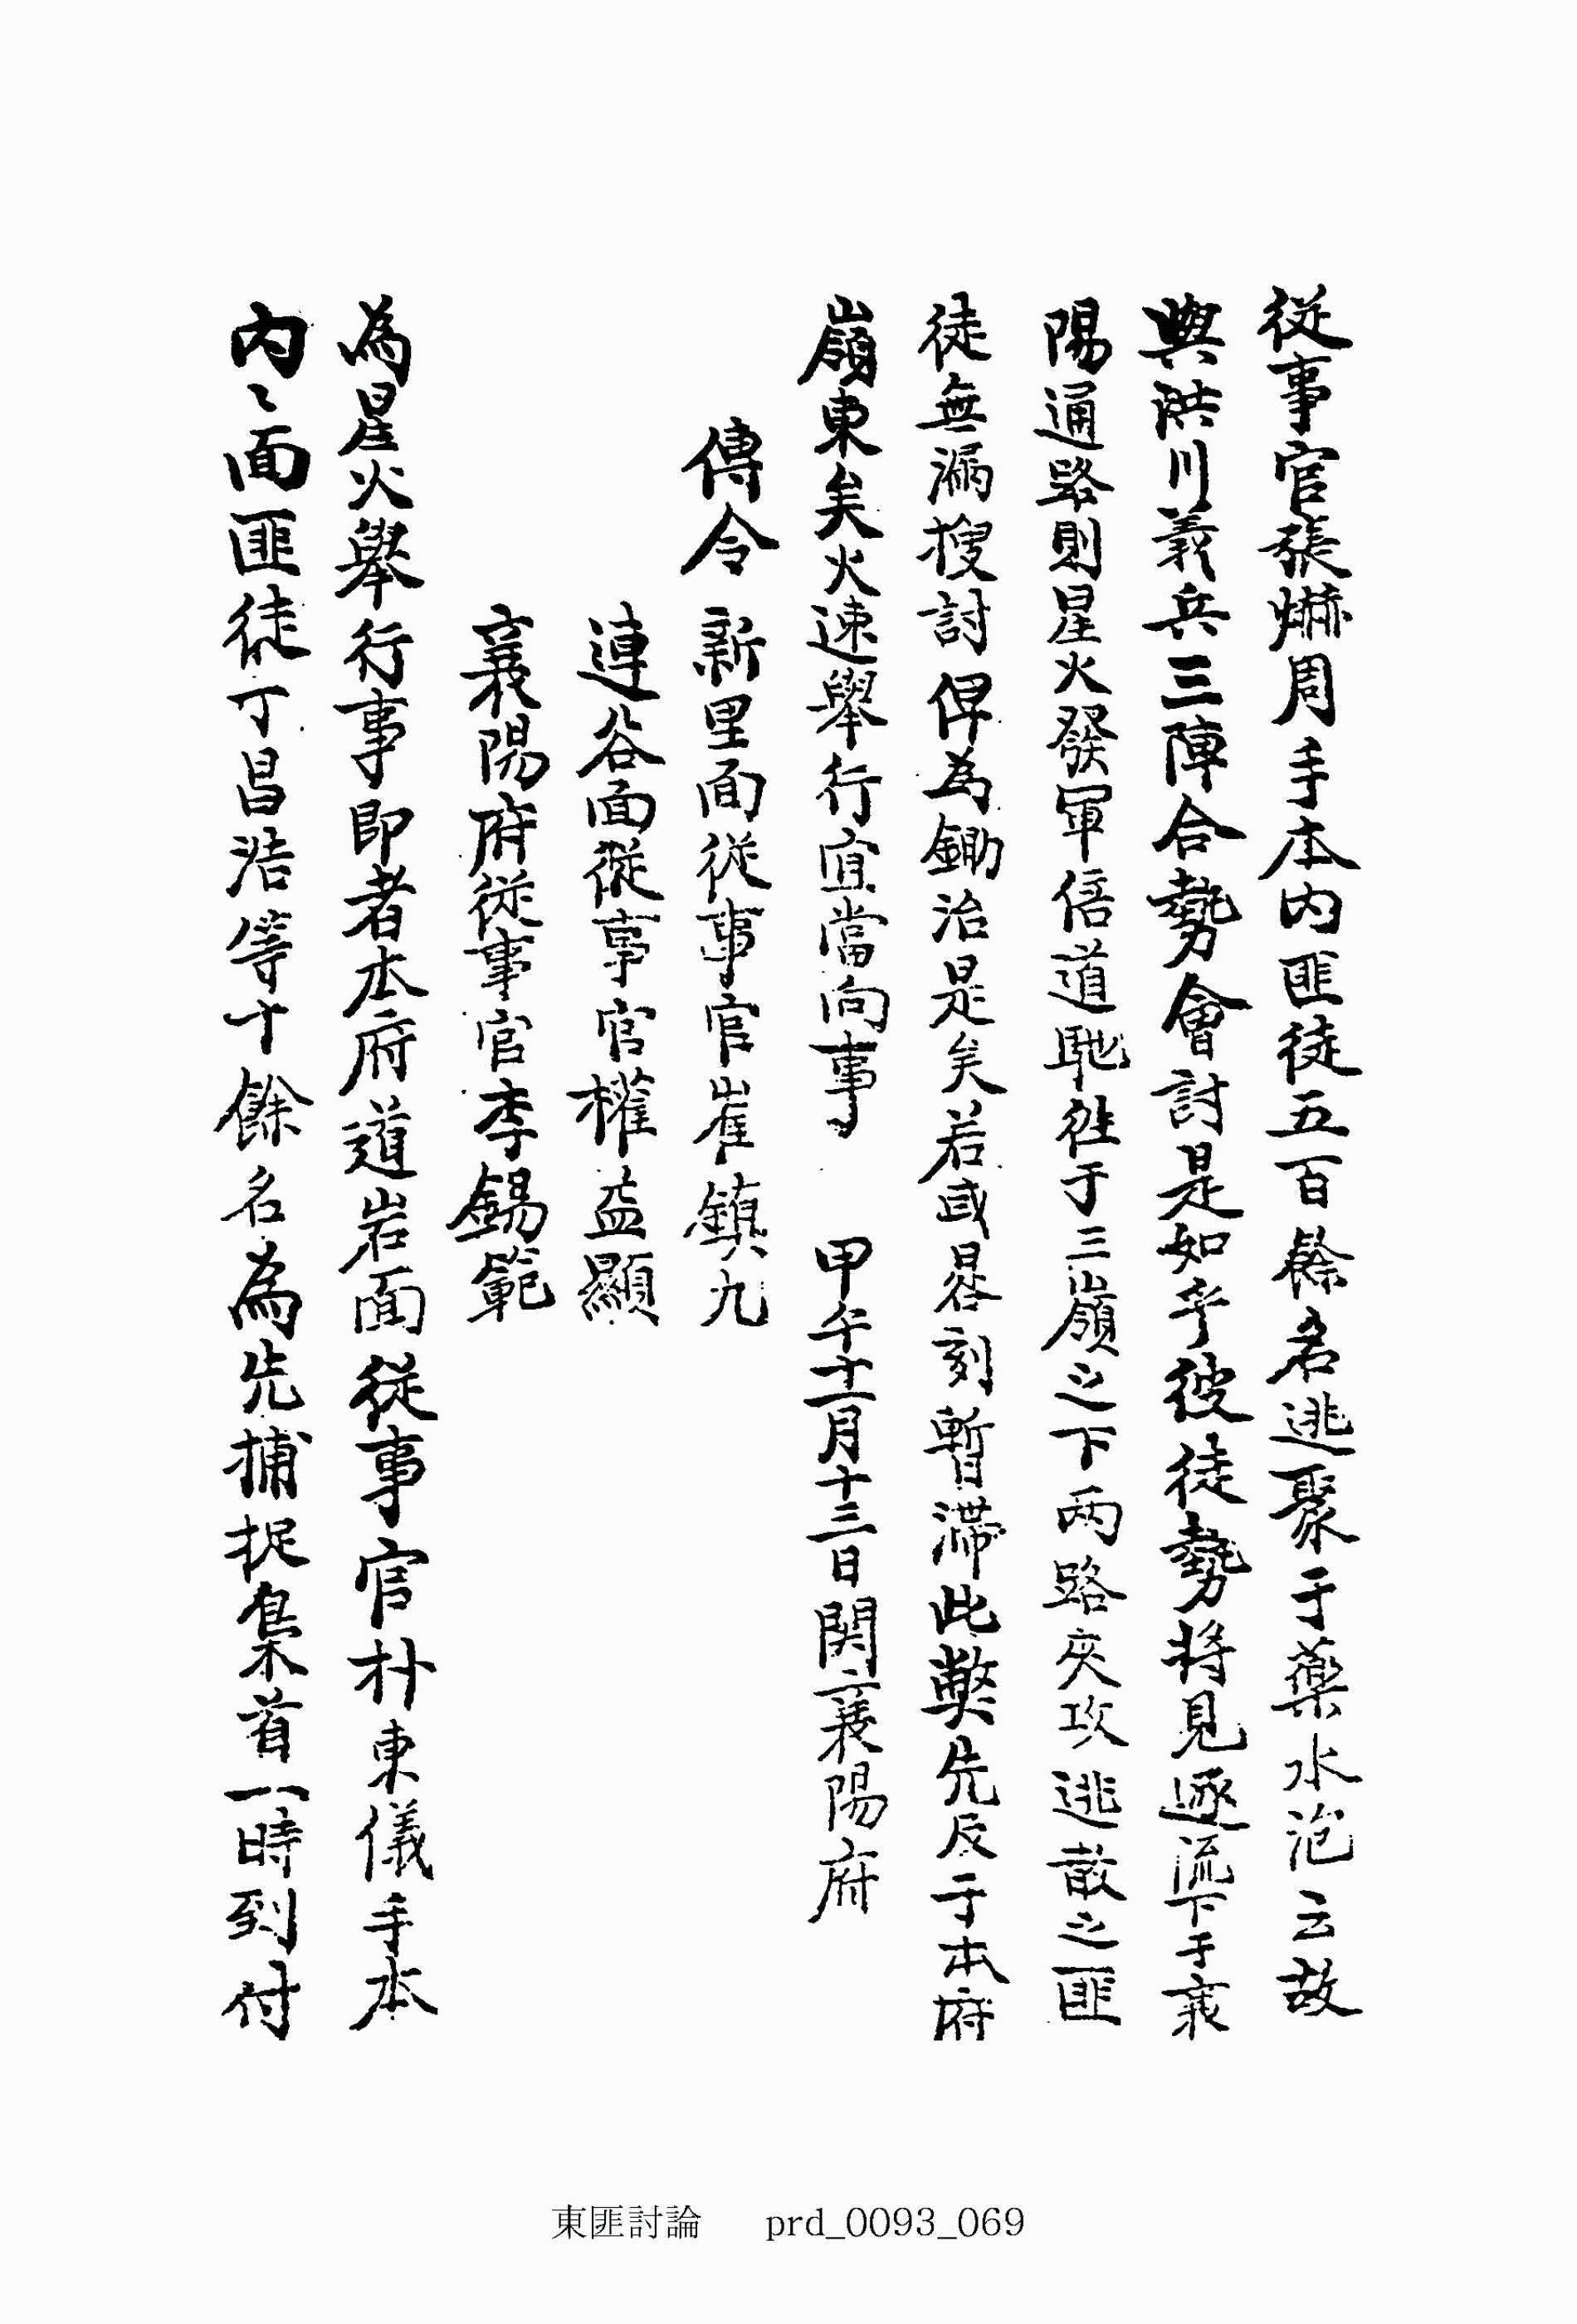 從事官張爀周手本內匪徒五百餘名逃聚于藥水泡云故
與洪川義兵三陣合勢會討是如乎彼徒勢將見逐流下于襄
陽通路則星火發軍倍道馳徃于三嶺之下兩路夾攻逃散之匪
徒無漏搜討俾為鋤治是矣若或晷刻暫滯此弊先反于本府
嶺東矣火速舉行宜當向事 甲午十一月十三日関襄陽府
傳令 新里面從事官崔鎮九
連谷面從事官權益顯
襄陽府從事官李錫範
為星火舉行事即者本府道岩面從事官朴東儀手本
內〻面匪徒丁昌浩等十餘名為先捕捉梟首一時到付
東匪討論 prd_0093_069